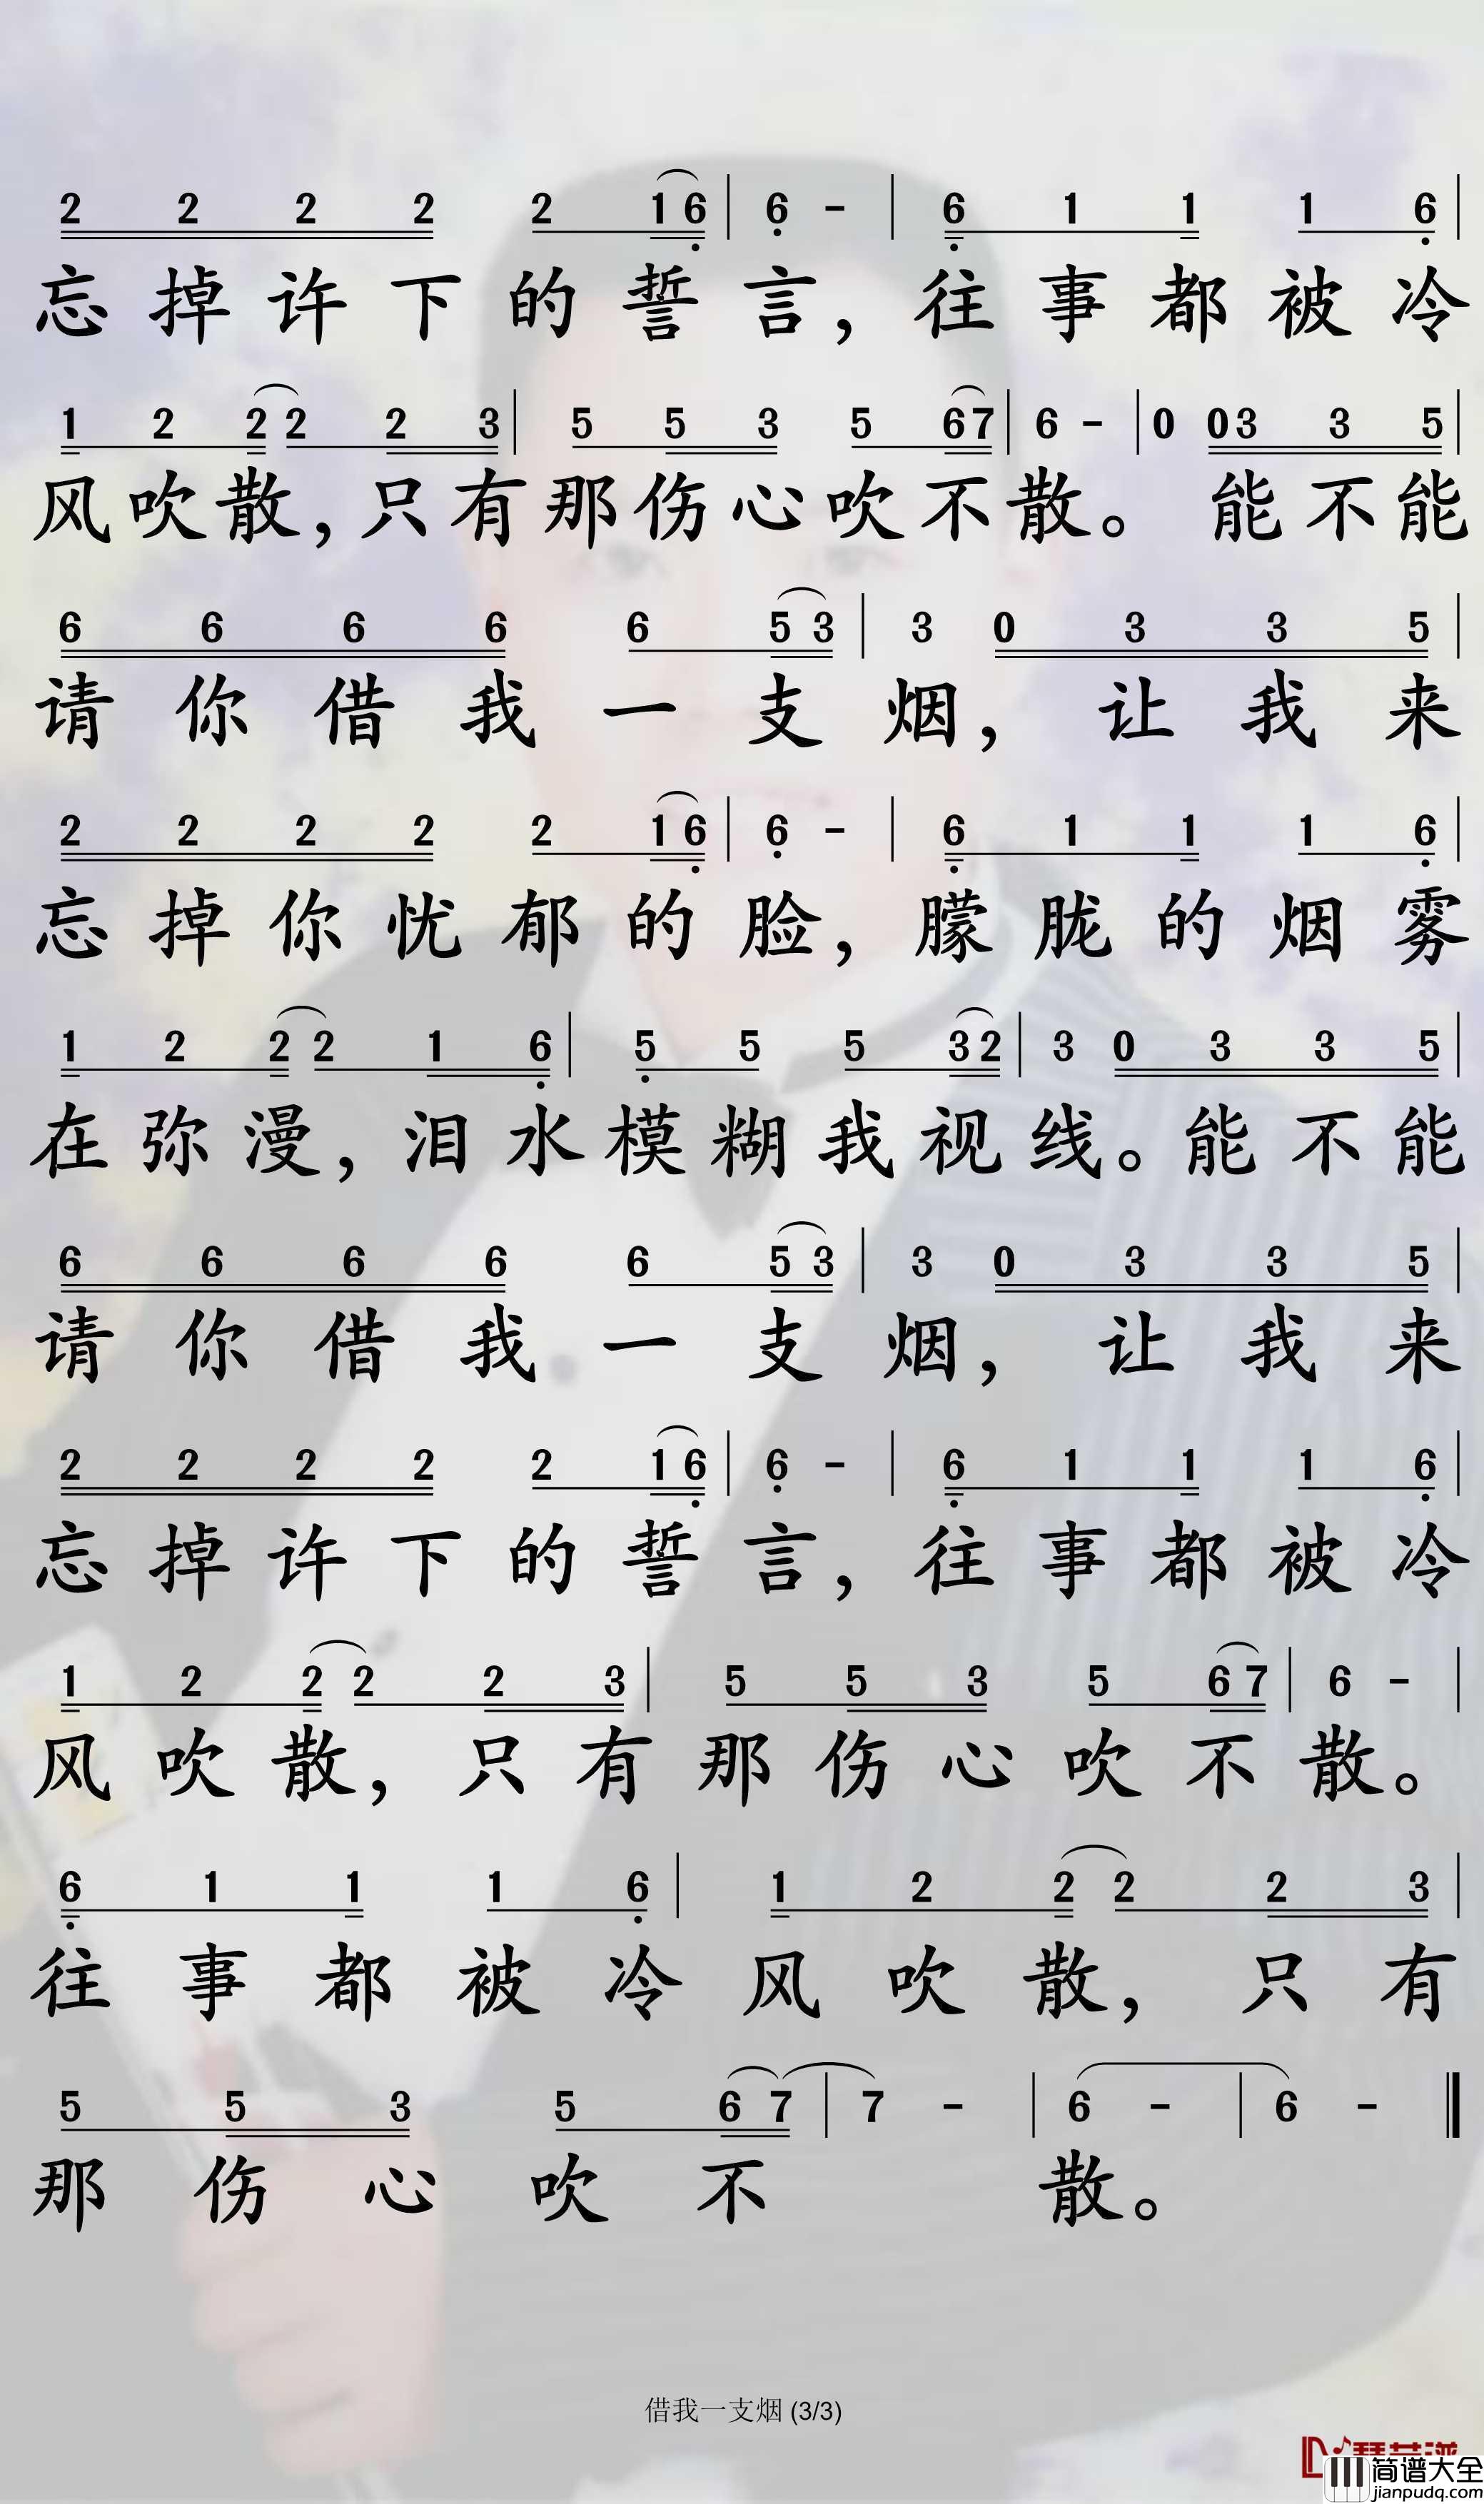 2 2 2 2 2 1 6 | 6 - | 6 1 1 1 6 |
忘掉许下的誓言，往事都被冷
1 2 2 2 2 3 | 5 5 3 5 6 7 | 6 - | 0 0 3 3 5 |
风吹散，只有那伤心吹不散。能不能
6 6 6 6 6 5 3 | 3 0 3 3 5 |
请你借我一支烟，让我来
2 2 2 2 2 1 6 | 6 - | 6 1 1 1 6 |
忘掉你忧郁的脸，朦胧的烟雾
1 2 2 2 1 6 | 5 5 5 3 2 | 3 0 3 3 5 |
在弥漫，泪水模糊我视线。能不能
6 6 6 6 6 5 3 | 3 0 3 3 5 |
请你借我一支烟，让我来
2 2 2 2 2 1 6 | 6 - | 6 1 1 1 6 |
忘掉许下的誓言，往事都被冷
1 2 2 2 2 3 | 5 5 3 5 6 7 | 6 - |
风吹散，只有那伤心吹不散。
6 1 1 1 6 | 1 2 2 2 2 3 |
往事都被冷风吹散，只有
5 5 3 5 6 7 | 7 - | 6 - | 6 - ‖
那伤心吹不散。
借我一支烟 (3/3)
简谱大全
jianpudq.com